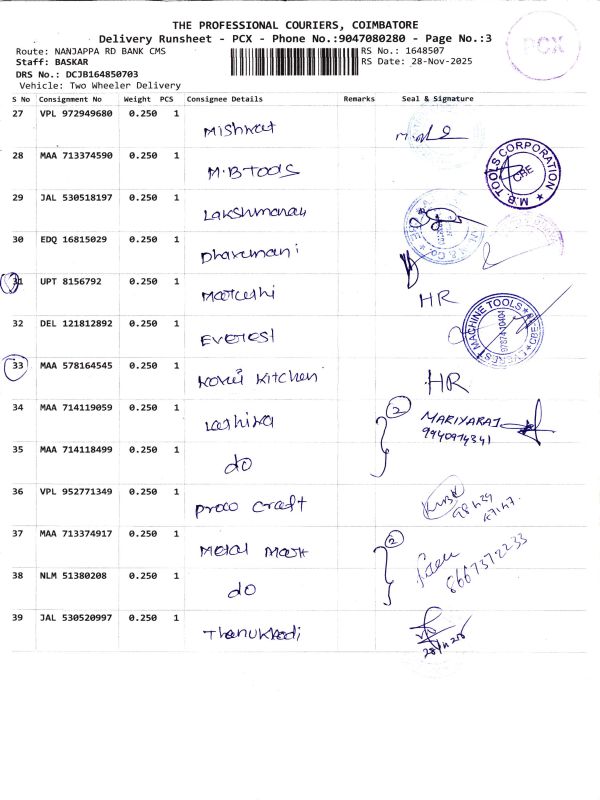 THE PROFESSIONAL COURIERS, COIMBATORE
Delivery Runsheet - PCX - Phone No.:9047080280 - Page No.:3
PCX
Route: NANJAPPA RD BANK CMS
RS No.: 1648507
Staff: BASKAR
RS Date: 28-Nov-2025
DRS No.: DCJB164850703
Vehicle: Two Wheeler Delivery
S No Consignment No Weight PCS Consignee Details Remarks Seal & Signature
27 VPL 972949680 0.250 1 Mishkat
28 MAA 713374590 0.250 1 M.B TOOLS
M.B. TOOLS CORPORATION ★ CBE
29 JAL 530518197 0.250 1 Lakshmanan
30 EDQ 16815029 0.250 1 Dharamani
31 UPT 8156792 0.250 1 HR
32 DEL 121812892 0.250 1 EVEREST
EVEREST MACHINE TOOLS ★ CBE ★
33 MAA 578164545 0.250 1 Kitchen HR
34 MAA 714119059 0.250 1 2 MARIYARAJ
9940974341
35 MAA 714118499 0.250 1 do
36 VPL 952771349 0.250 1 craft
37 MAA 713374917 0.250 1 Metal Mark 2
8667372233
38 NLM 51380208 0.250 1 do
39 JAL 530520997 0.250 1 Thanukkodi